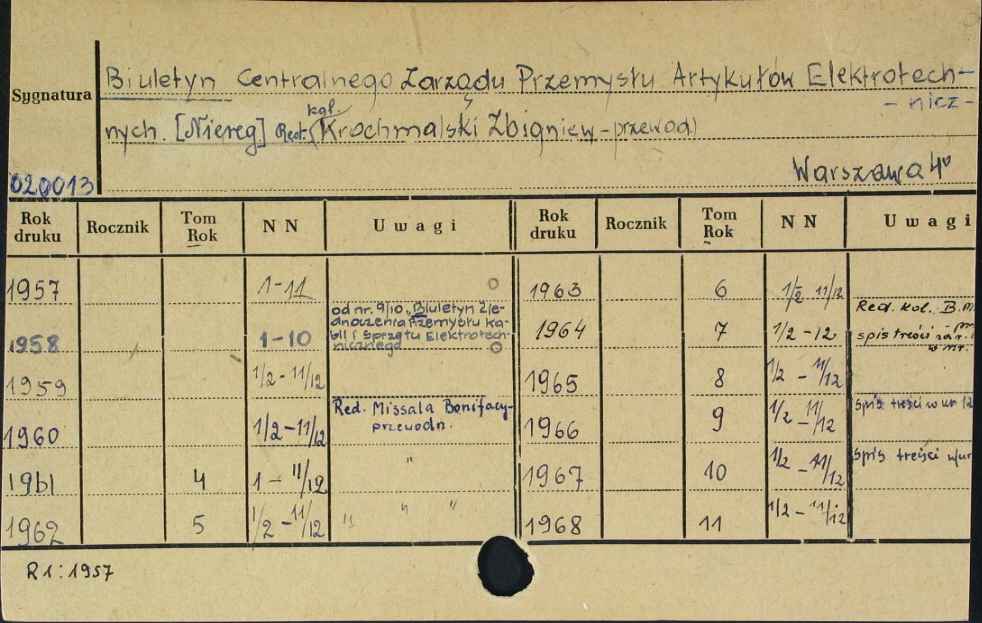 Sygnatura
Biuletyn Centralnego Zarządu Przemysłu Artykułów Elektrotech-
- nicz -
nych. [Niereg] Red. kol. (Krochmalski Zbigniew - przewod)
Warszawa 4°
020013
Rok druku Rocznik Tom Rok NN Uwagi Rok druku Rocznik Tom Rok NN Uwagi
1957 1-11 1963 6 1/2 - 11/12
1958 1-10 od nr. 9/10 "Biuletyn Zje-
dnoczenia Przemysłu Ka-
bli i Sprzętu Elektrotech-
nicznego
1964 7 1/2 - 12 Red. kol. B.
spis treści
1959 1/2 - 11/12 1965 8 1/2 - 11/12
1960 1/2 - 11/12 Red. Missala Bonifacy-
przewodn.
1966 9 1/2 - 11/12 spis treści w nr 12
1961 4 1 - 11/12 " 1967 10 1/2 - 11/12 spis treści w nr
1962 5 1/2 - 11/12 " " " 1968 11 1/2 - 11/12
R 1 : 1957